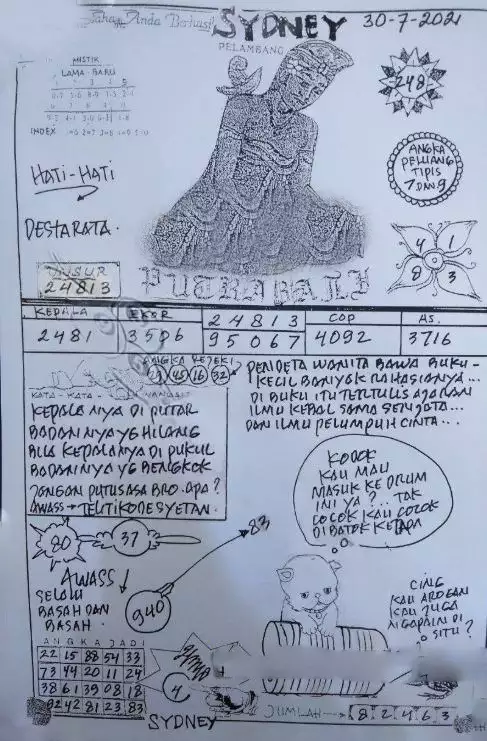 Anda Berhasil
SYDNEY
30-7-2021
PELAMBANG
MISTIK
LAMA - BARU
INDEX
248
ANGKA
PELUANG
TIPIS
7 DAN 9
HATI-HATI
DESTARATA.
4 1
8 3
UNSUR
24813
PUTRA BALI
KEPALA
EKOR
24813
COP
AS.
2481
3586
95067
4092
3716
ANGKA REJEKI
45 16 32
KATA - KATA
KEPALANYA DI PUTAR
BADANNYA YG HILANG
BILA KEPALANYA DI PUKUL
BADANNYA YG BENGKOK
JANGAN PUTUSASA BRO. APA?
AWASS → TELITI KODE SYETAN.
PENDETA WANITA BAWA BUKU-
KECIL BANYAK RAHASIANYA...
DI BUKU ITU TERTULIS AJARAN
ILMU KEBAL SAMA SENJATA...
DAN ILMU PELUMPUH CINTA...
KODOK
KAU MAU
MASUK KE DRUM
INI YA ?... TAK
COCOK KAU COCOK
DI BATOK KELAPA
80
37
83
AWASS
SELALU
BASAH DAN
BASAH.
940
CING
KAU AROGAN
KAU JUGA
NGAPAIN DI
SITU ?
ANGKA JADI
22 15 88 54 33
73 44 20 11 24
38 61 39 08 18
92 42 81 23 83
4
SYDNEY
JUMLAH → 8 2 4 6 3